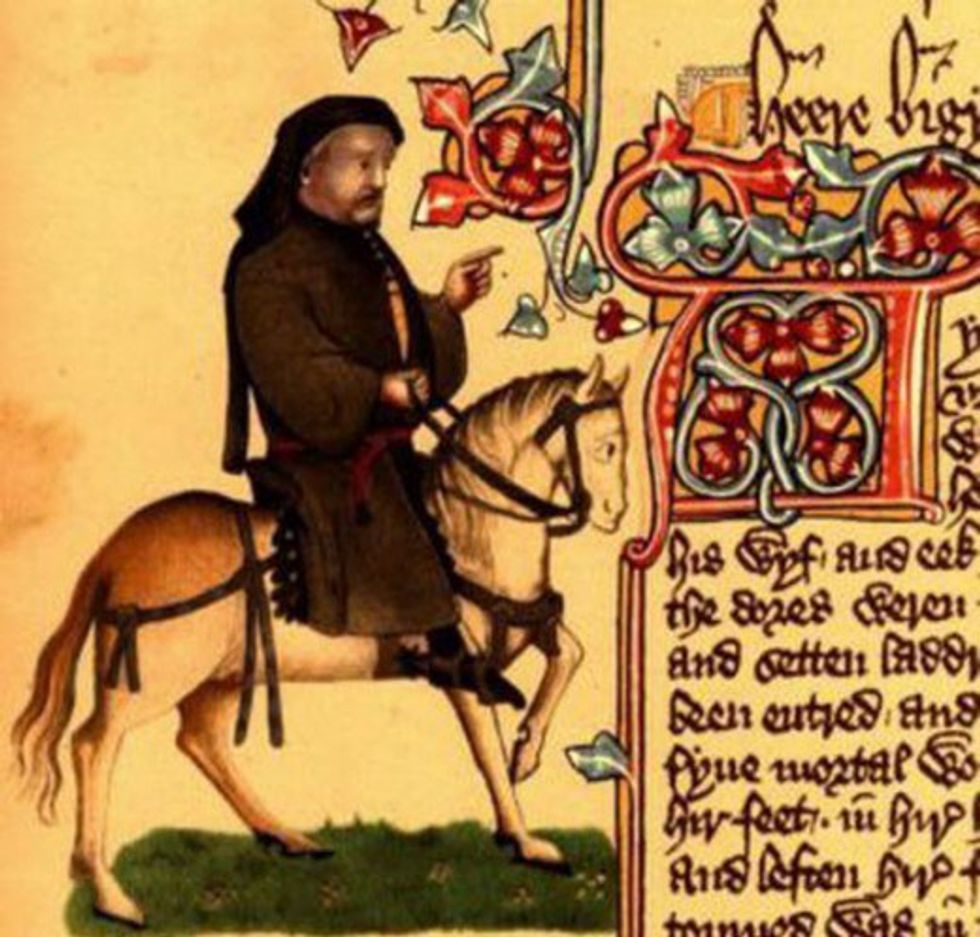 Heere big
A
his wyf· and eek
the dores weren
and setten laddr
been entred· and
fyue mortal wo
hir feet /· in hir
and leften hir f
tourned was in